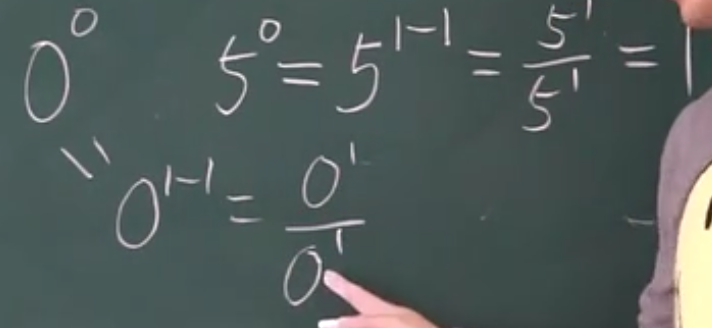 0⁰ 5⁰ = 5¹⁻¹ = 5¹/5¹ = 1
= 0¹⁻¹ = 0¹/0¹